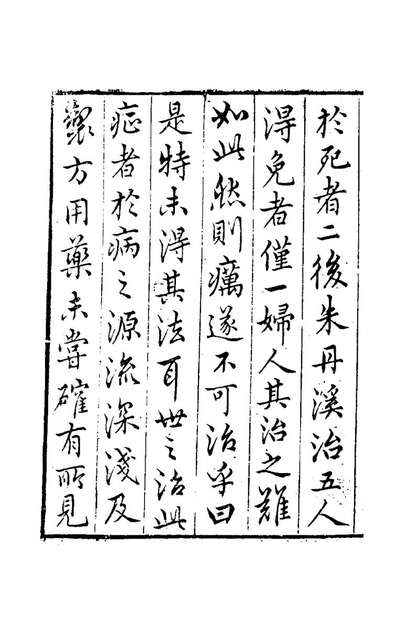 於死者二後朱丹溪治五人
得免者僅一婦人其治之難
如此然則癘遂不可治乎曰
是特未得其法耳世之治此
症者於病之源流深淺及
製方用藥未嘗確有所見